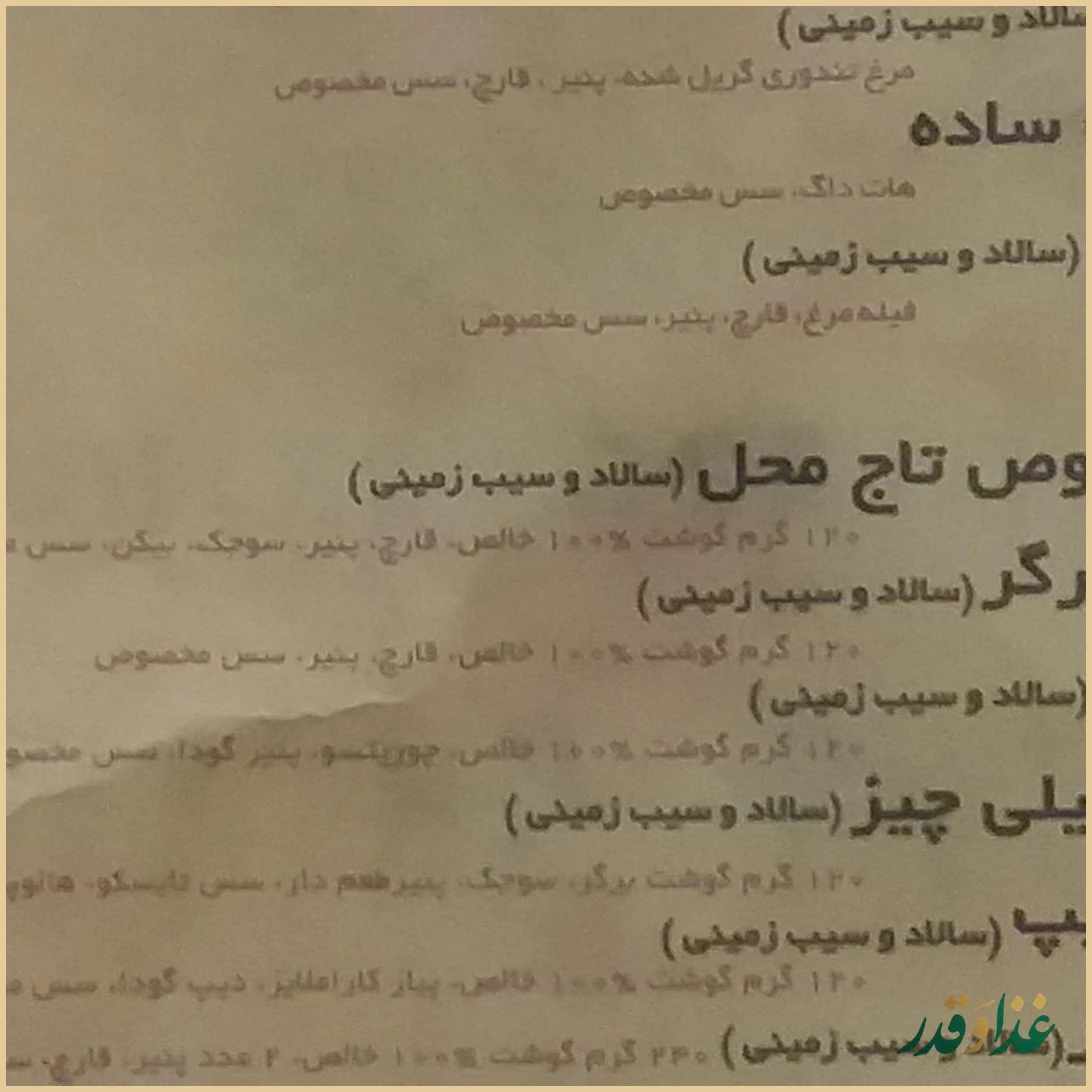 سالاد و سیب زمینی)
مرغ تندوری گریل شده، پنیر، قارچ، سس مخصوص
ساده
هات داگ، سس مخصوص
(سالاد و سیب زمینی)
فیله مرغ، قارچ، پنیر، سس مخصوص
تاج محل (سالاد و سیب زمینی)
۱۲۰ گرم گوشت ۱۰۰% خالص، قارچ، پنیر، سوجک، بیکن، سس
(سالاد و سیب زمینی)
۱۲۰ گرم گوشت ۱۰۰% خالص، قارچ، پنیر، سس مخصوص
(سالاد و سیب زمینی)
۱۲۰ گرم گوشت ۱۰۰% خالص، چوریتسو، پنیر گودا، سس
چیز (سالاد و سیب زمینی)
۱۲۰ گرم گوشت برگر، سوجک، پنیر طعم دار، سس تاباسکو،
(سالاد و سیب زمینی)
۱۲۰ گرم گوشت ۱۰۰% خالص، پیاز کاراملایز، دیپ گودا، سس
(سالاد و سیب زمینی)
۲۴۰ گرم گوشت ۱۰۰% خالص، ۲ عدد پنیر، قارچ،
غذا و قدر